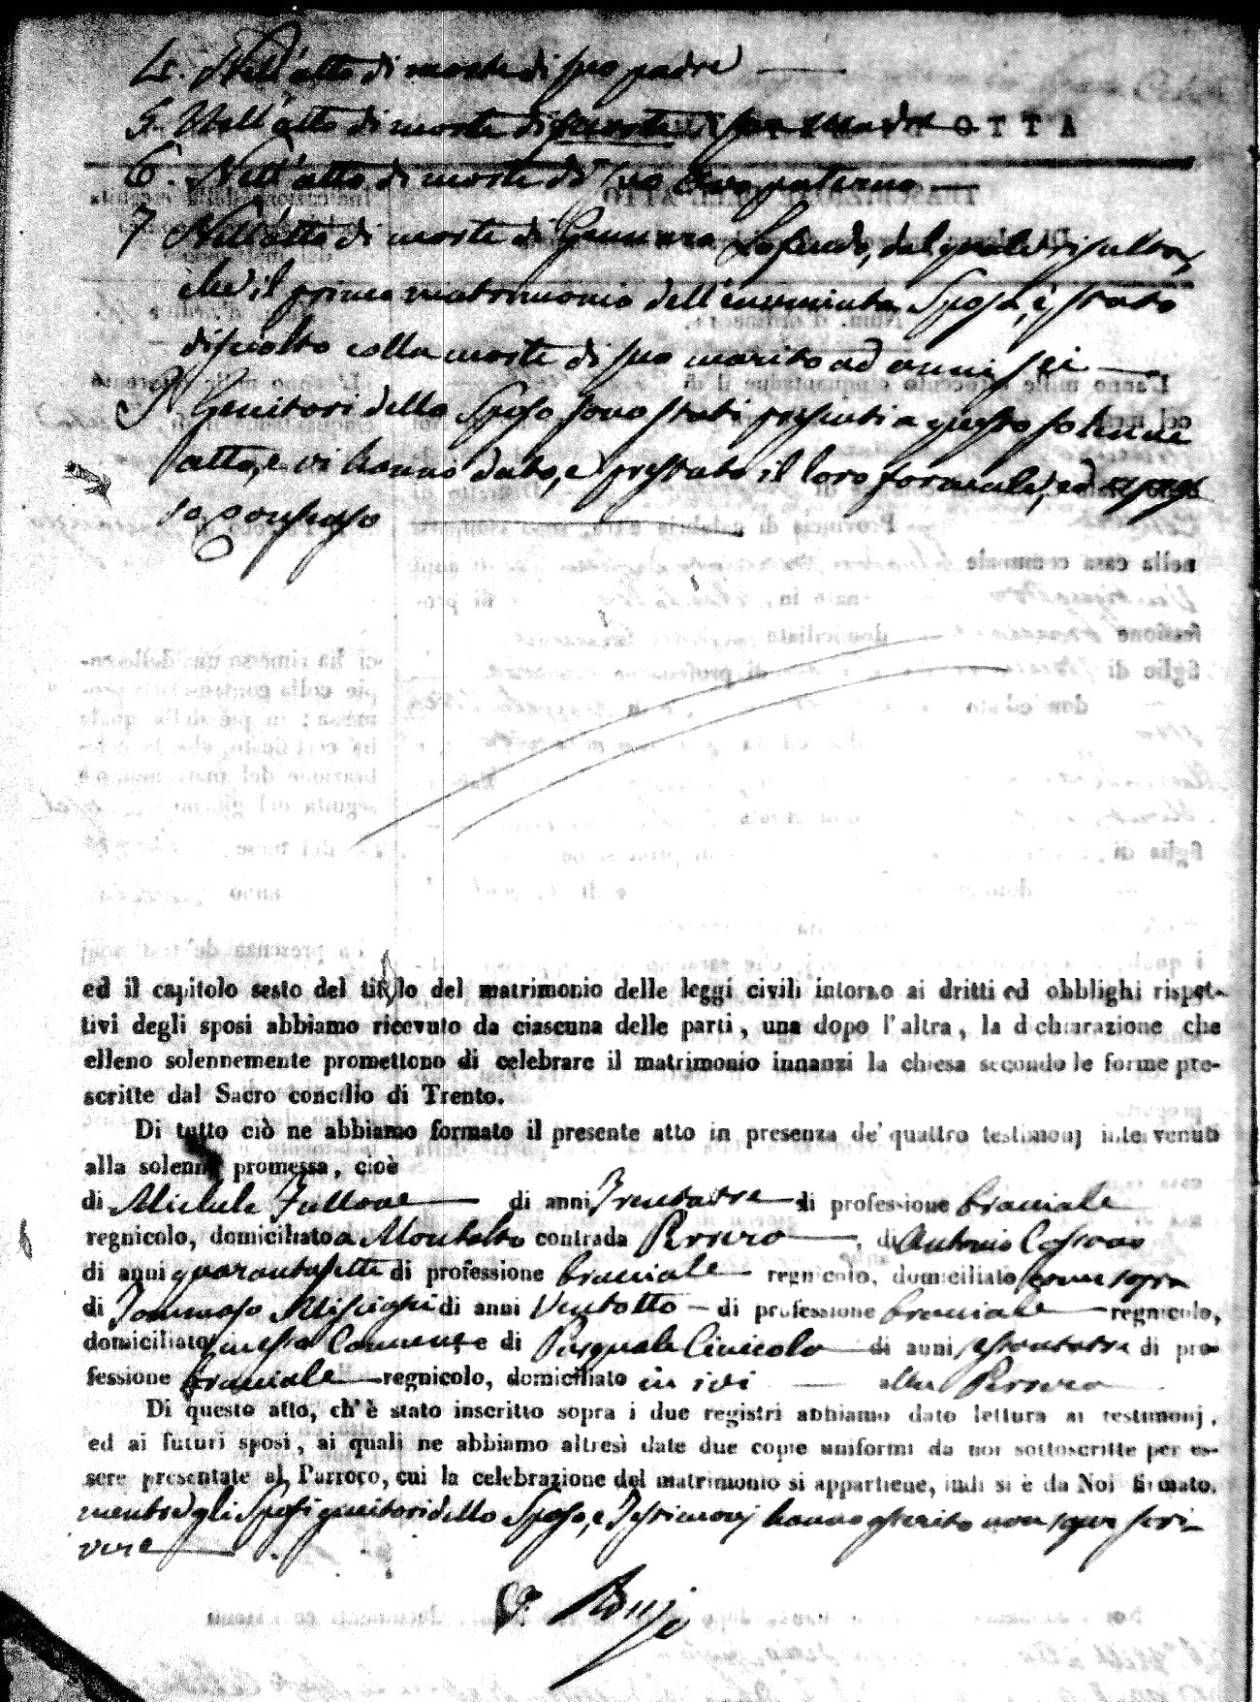 4. Nell'atto di morte di suo padre
5. Nell'atto di morte di sua madre
6. Nell'atto di morte di suo avo paterno
7 Nell'atto di morte di Gennaro dal quale risulta,
che il primo matrimonio dell'enunciata Sposa, è stato
disciolto colla morte di suo marito ad anni sei
I Genitori dello Sposo sono stati presenti a questo solenne
atto, e vi hanno dato, e prestato il loro formale, ed espres
so consenso
ed il capitolo sesto del titolo del matrimonio delle leggi civili intorno ai dritti ed obblighi rispet-
tivi degli sposi abbiamo ricevuto da ciascuna delle parti, una dopo l'altra, la dichiarazione che
elleno solennemente promettono di celebrare il matrimonio innanzi la chiesa secondo le forme pre-
scritte dal Sacro concilio di Trento.
Di tutto ciò ne abbiamo formato il presente atto in presenza de' quattro testimonj intervenuti
alla solenne promessa, cioè
di Michele Fullone di anni Trentatre di professione bracciale
regnicolo, domiciliato a Montalto contrada Perrero, di Antonio
di anni quarantasette di professione bracciale regnicolo, domiciliato come sopra
di Tommaso di anni Ventotto di professione bracciale regnicolo,
domiciliato in questa Comune, e di Pasquale di anni sessantatre di pro-
fessione bracciale regnicolo, domiciliato in ivi alla Perrero
Di questo atto, ch'è stato inscritto sopra i due registri abbiamo dato lettura ai testimonj,
ed ai futuri sposi, ai quali ne abbiamo altresì date due copie uniformi da noi sottoscritte per es-
sere presentate al Parroco, cui la celebrazione del matrimonio si appartiene, indi si è da Noi firmato,
mentre gli Sposi genitori dello Sposo, e Testimonj hanno asserito non saper scri-
vere